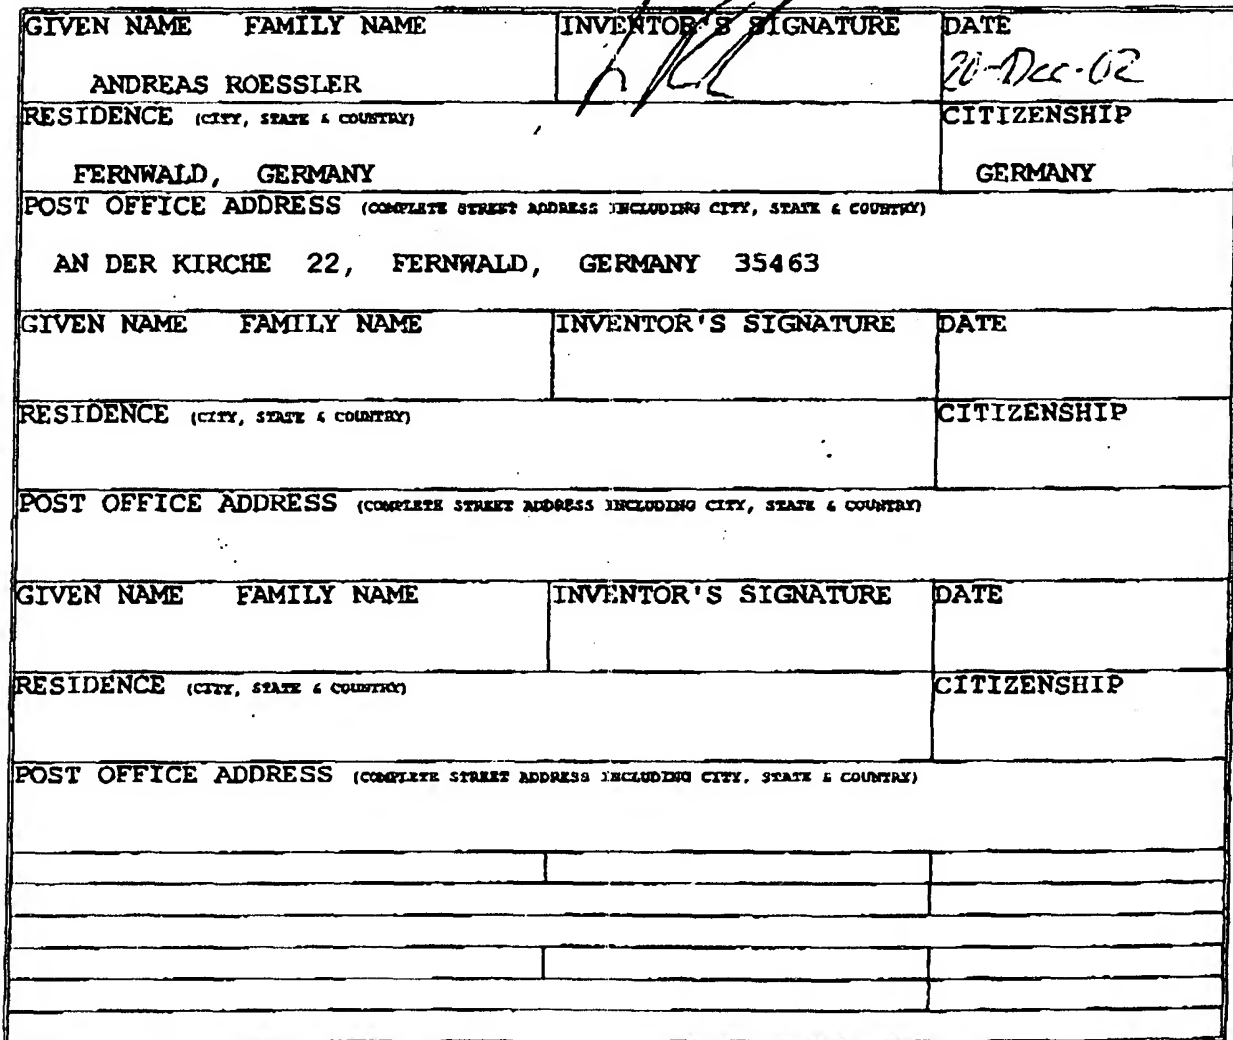 GIVEN NAME FAMILY NAME INVENTOR'S SIGNATURE DATE
ANDREAS ROESSLER 20-Dec-02
RESIDENCE (CITY, STATE & COUNTRY) CITIZENSHIP
FERNWALD, GERMANY GERMANY
POST OFFICE ADDRESS (COMPLETE STREET ADDRESS INCLUDING CITY, STATE & COUNTRY)
AN DER KIRCHE 22, FERNWALD, GERMANY 35463
GIVEN NAME FAMILY NAME INVENTOR'S SIGNATURE DATE
RESIDENCE (CITY, STATE & COUNTRY) CITIZENSHIP
POST OFFICE ADDRESS (COMPLETE STREET ADDRESS INCLUDING CITY, STATE & COUNTRY)
GIVEN NAME FAMILY NAME INVENTOR'S SIGNATURE DATE
RESIDENCE (CITY, STATE & COUNTRY) CITIZENSHIP
POST OFFICE ADDRESS (COMPLETE STREET ADDRESS INCLUDING CITY, STATE & COUNTRY)